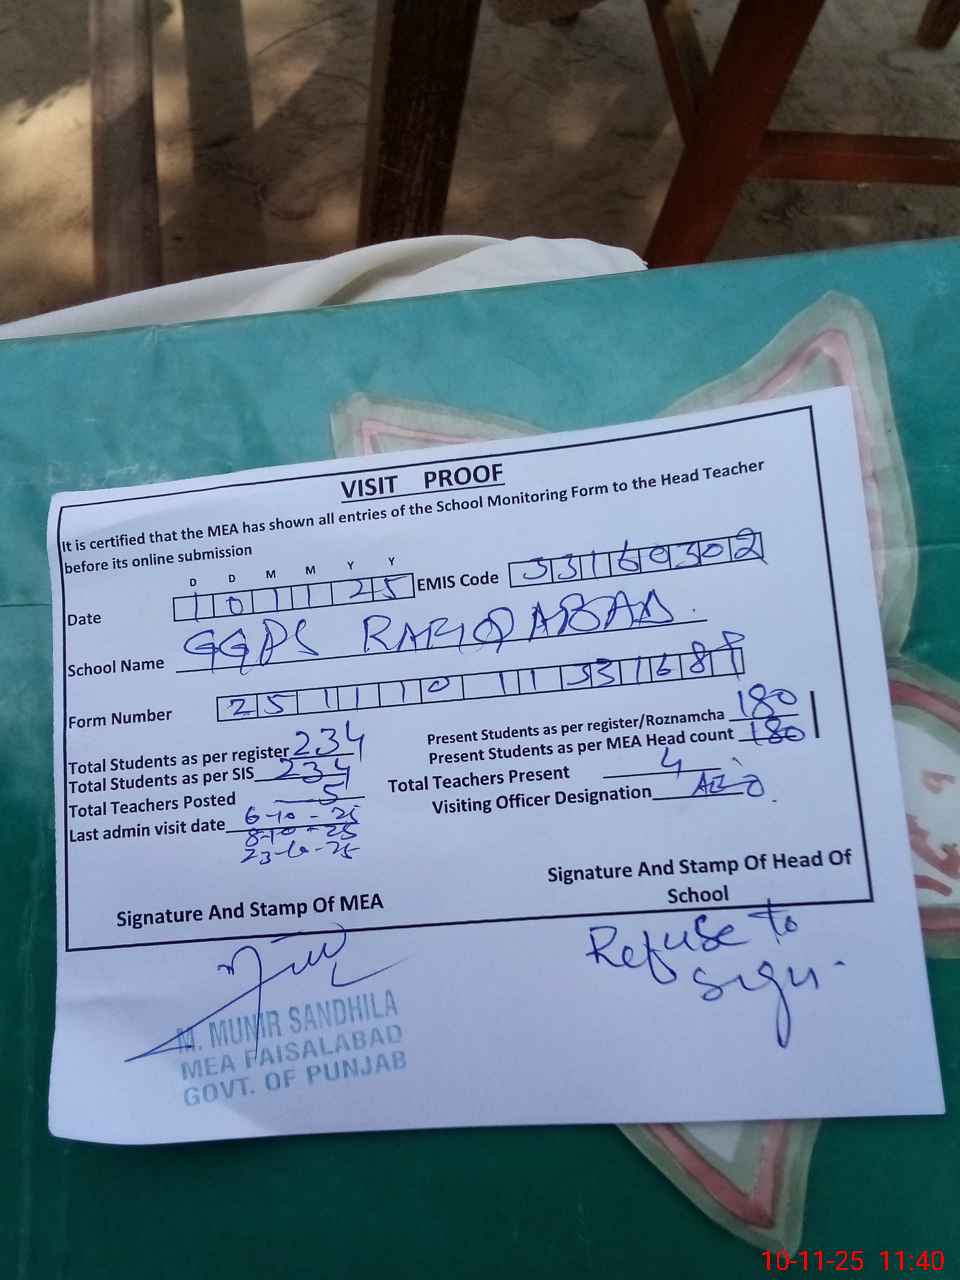 VISIT PROOF
It is certified that the MEA has shown all entries of the School Monitoring Form to the Head Teacher
before its online submission
D D M M Y Y
Date 1 0 1 1 2 5 EMIS Code 3 3 1 6 0 3 0 2
School Name GGPS RAFIQABAD
Form Number 2 5 1 1 1 0 1 1 3 3 1 6 8
Total Students as per register 234 Present Students as per register/Roznamcha 180
Total Students as per SIS 234 Present Students as per MEA Head count 180
Total Teachers Posted 5 Total Teachers Present 4
Last admin visit date 6-10-25 Visiting Officer Designation AEO
8-10-25
25
Signature And Stamp Of MEA Signature And Stamp Of Head Of
School
Refuse to
sign.
M. MUNIR SANDHILA
MEA FAISALABAD
GOVT. OF PUNJAB
10-11-25 11:40